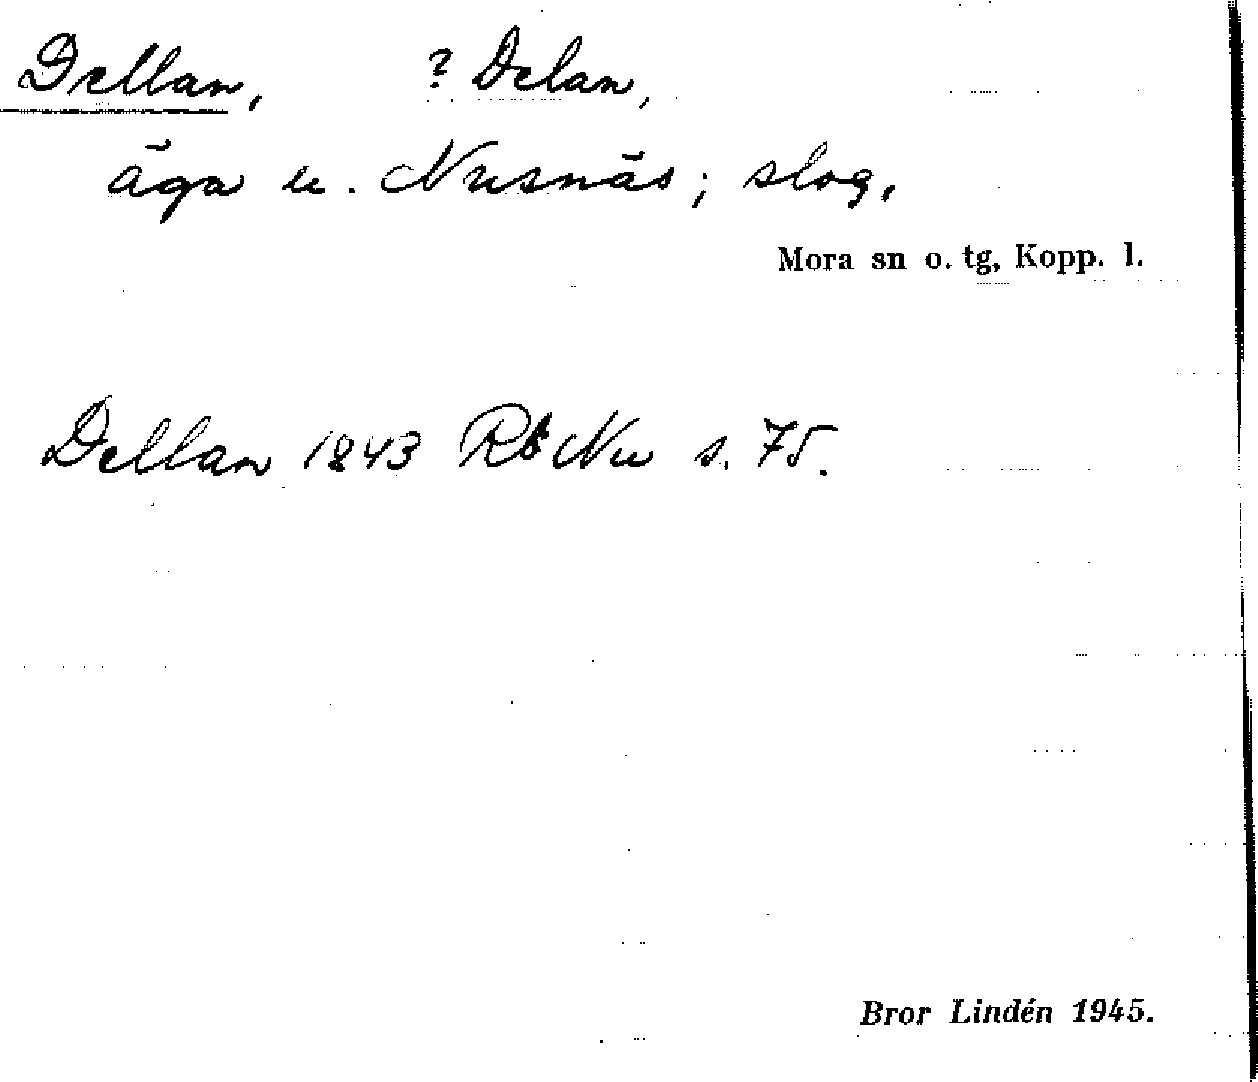 Dellan, ? Delan,
äga u. Nusnäs; slog.
Mora sn o. tg, Kopp. l.
Dellan 1843 Rb Nu s. 75.
Bror Lindén 1945.